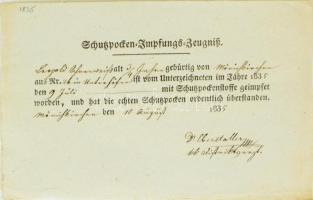 1835
Schutzpocken-Impfungs-Zeugniß.
Leopold alt 3 Jahre gebürtig von Mönichkirchen
aus Nr. in ist vom Unterzeichneten im Jahre 1835
den 9 Juli mit Schutzpockenstoffe geimpfet
worden, und hat die echten Schutzpocken ordentlich überstanden.
Mönichkirchen den 18 August 1835
Dr